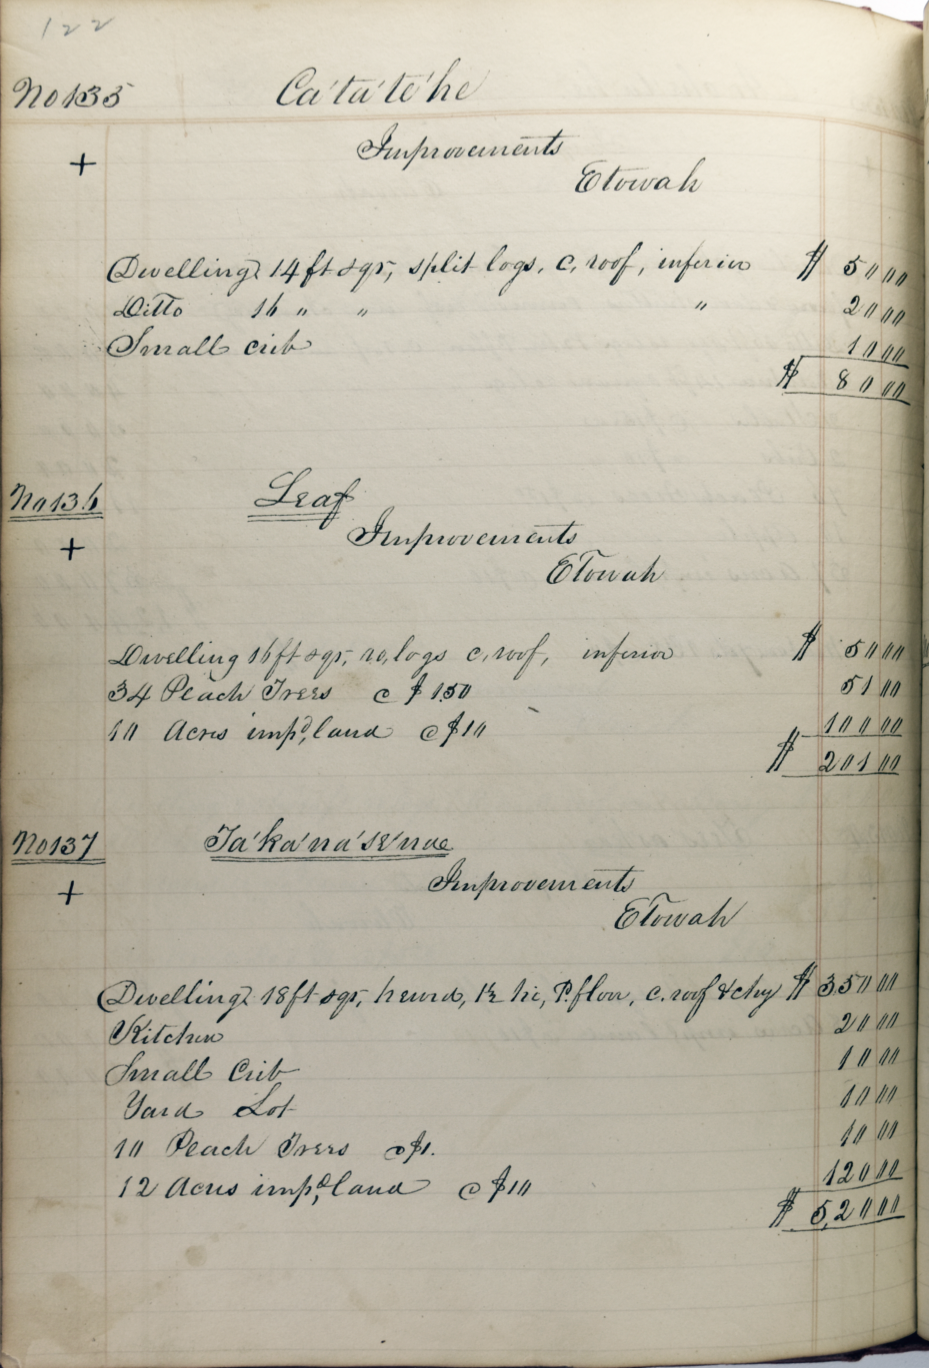 122
No 135 Ca'ta'te'he
+ Improvements
Etowah
Dwelling 14 ft sqr, split logs, c, roof, inferior $ 50 00
Ditto 16 " " " 20 00
Small crib 10 00
$ 80 00
No 136 Leaf
+ Improvements
Etowah
Dwelling 16 ft sqr, ro, logs c, roof, inferior $ 50 00
34 Peach Trees c $ 1.50 51 00
10 Acres impd, land c $10 100 00
$ 201 00
No 137 Ta'ka'na'se'nae
+ Improvements
Etowah
Dwelling 18 ft sqr, hewed, 1½ hi, P. floor, c. roof & chy $ 350 00
Kitchen 20 00
Small Crib 10 00
Yard Lot 10 00
10 Peach Trees c $1. 10 00
12 Acres impd, land c $10 120 00
$ 5,20 00